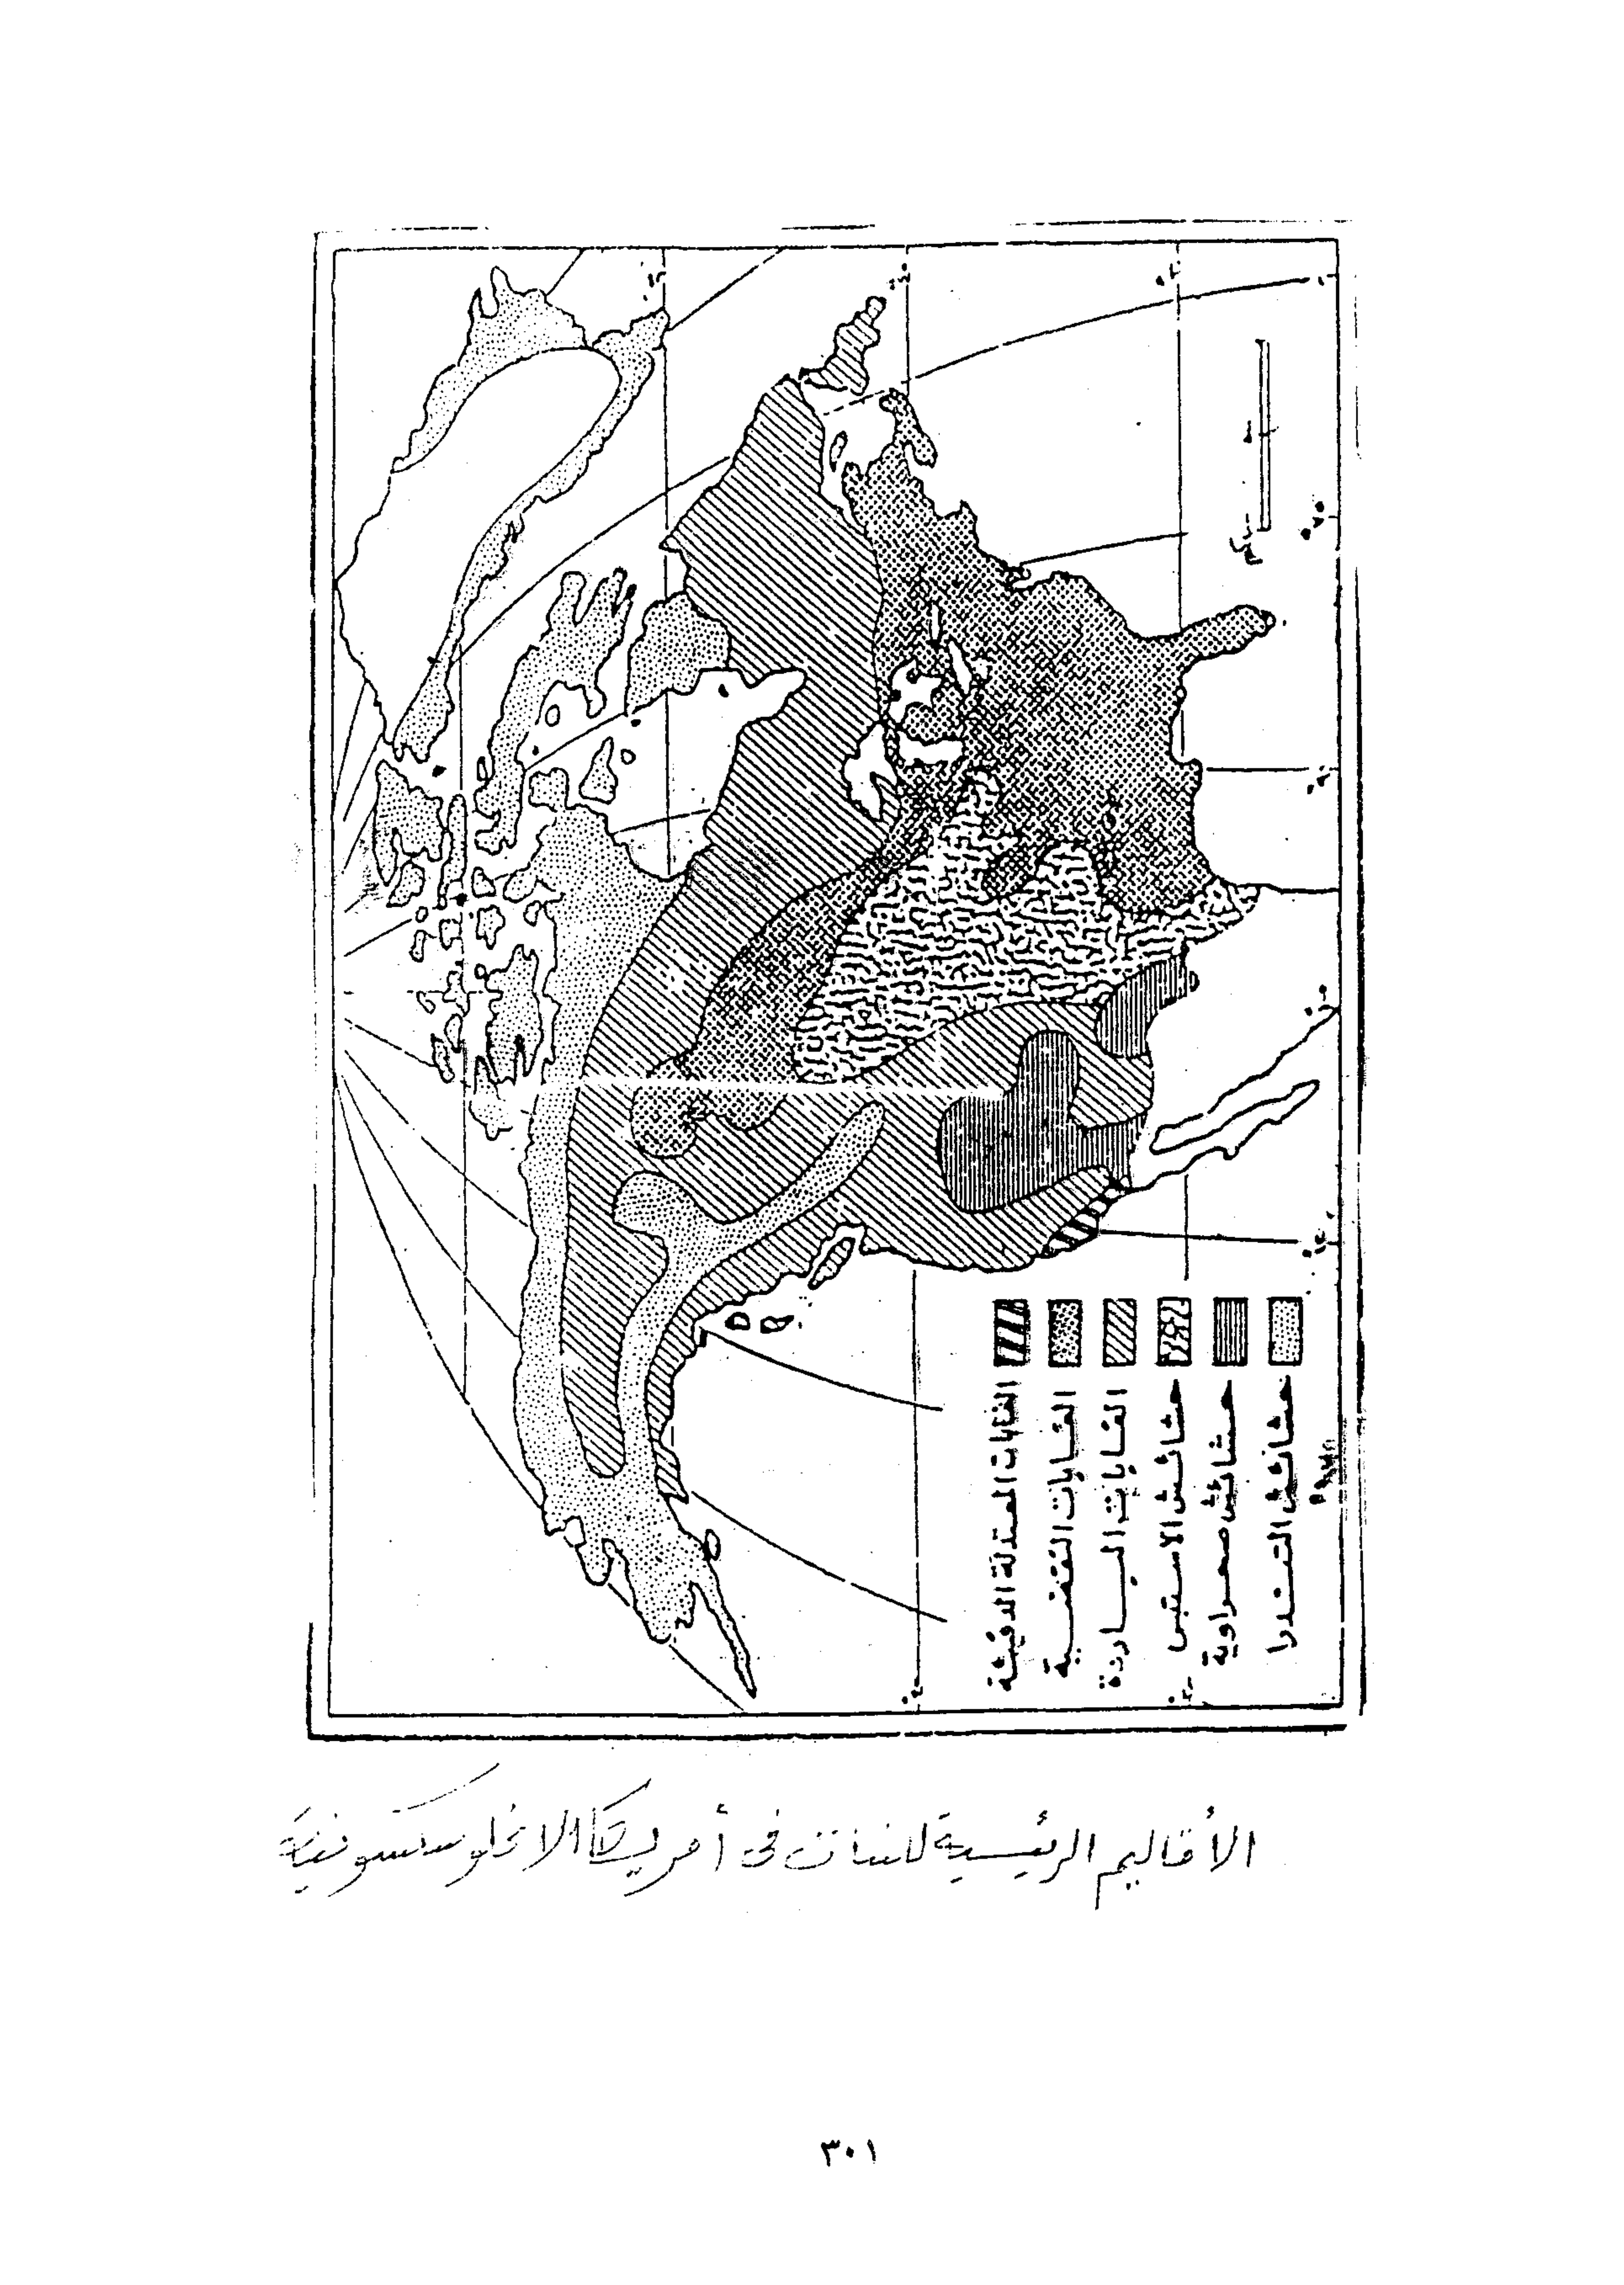 الغابات المعتدلة الدفيئة
الغابات النفضية
الغابات الباردة
حشائش الاستبس
حشائش صحراوية
حشائش التندرا
كم
الأقاليم الرئيسية للنبات فى أمريكا الانجلوسكسونية
٣٠١